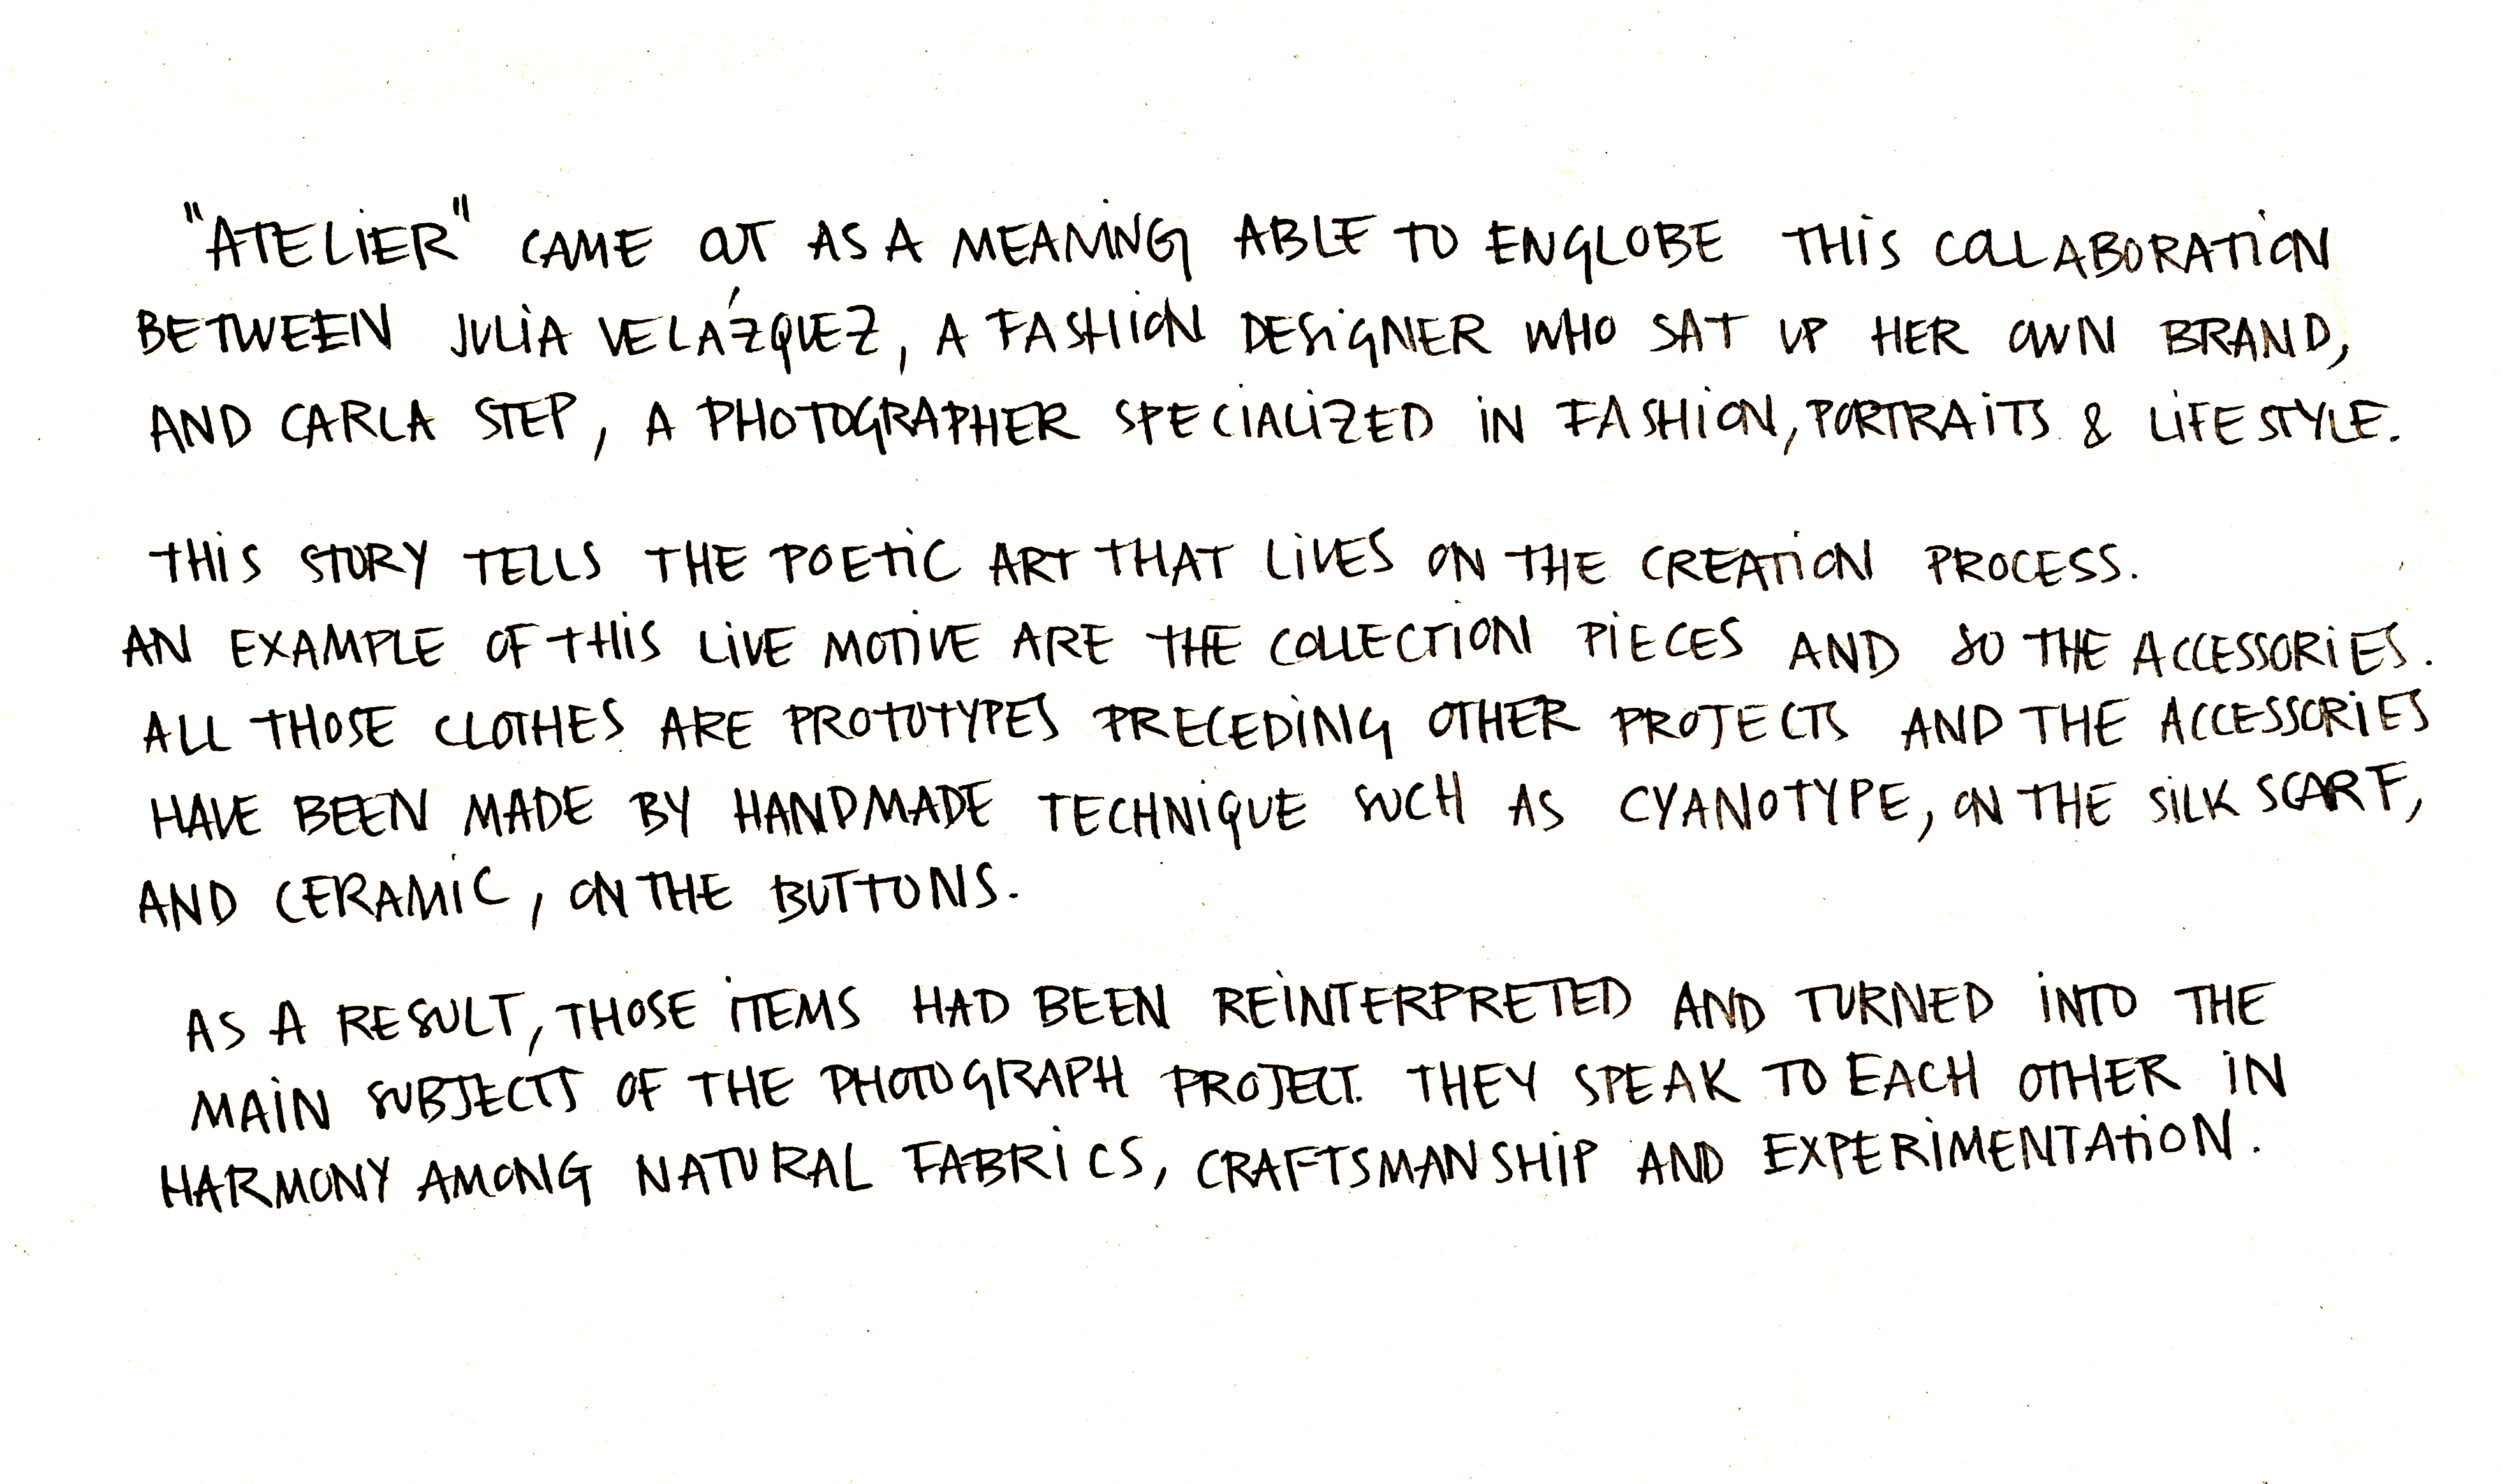 "ATELiER" CAME OUT AS A MEANiNG ABLE TO ENGLOBE THiS COLLABORATiON
BETWEEN JULiA VELÁZQUEZ, A FASHiON DESiGNER WHO SAT UP HER OWN BRAND,
AND CARLA STEP, A PHOTOGRAPHER SPECiALiZED iN FASHiON, PORTRAiTS & LiFESTYLE.
THiS STORY TELLS THE POETiC ART THAT LiVES ON THE CREATiON PROCESS.
AN EXAMPLE OF THiS LiVE MOTiVE ARE THE COLLECTiON PiECES AND SO THE ACCESSORiES.
ALL THOSE CLOTHES ARE PROTOTYPES PRECEDiNG OTHER PROJECTS AND THE ACCESSORiES
HAVE BEEN MADE BY HANDMADE TECHNiQUE SUCH AS CYANOTYPE, ON THE SiLK SCARF,
AND CERAMiC, ON THE BUTTONS.
AS A RESULT, THOSE iTEMS HAD BEEN REiNTERPRETED AND TURNED iNTO THE
MAiN SUBJECTS OF THE PHOTOGRAPH PROJECT. THEY SPEAK TO EACH OTHER iN
HARMONY AMONG NATURAL FABRiCS, CRAFTSMANSHiP AND EXPERiMENTATiON.